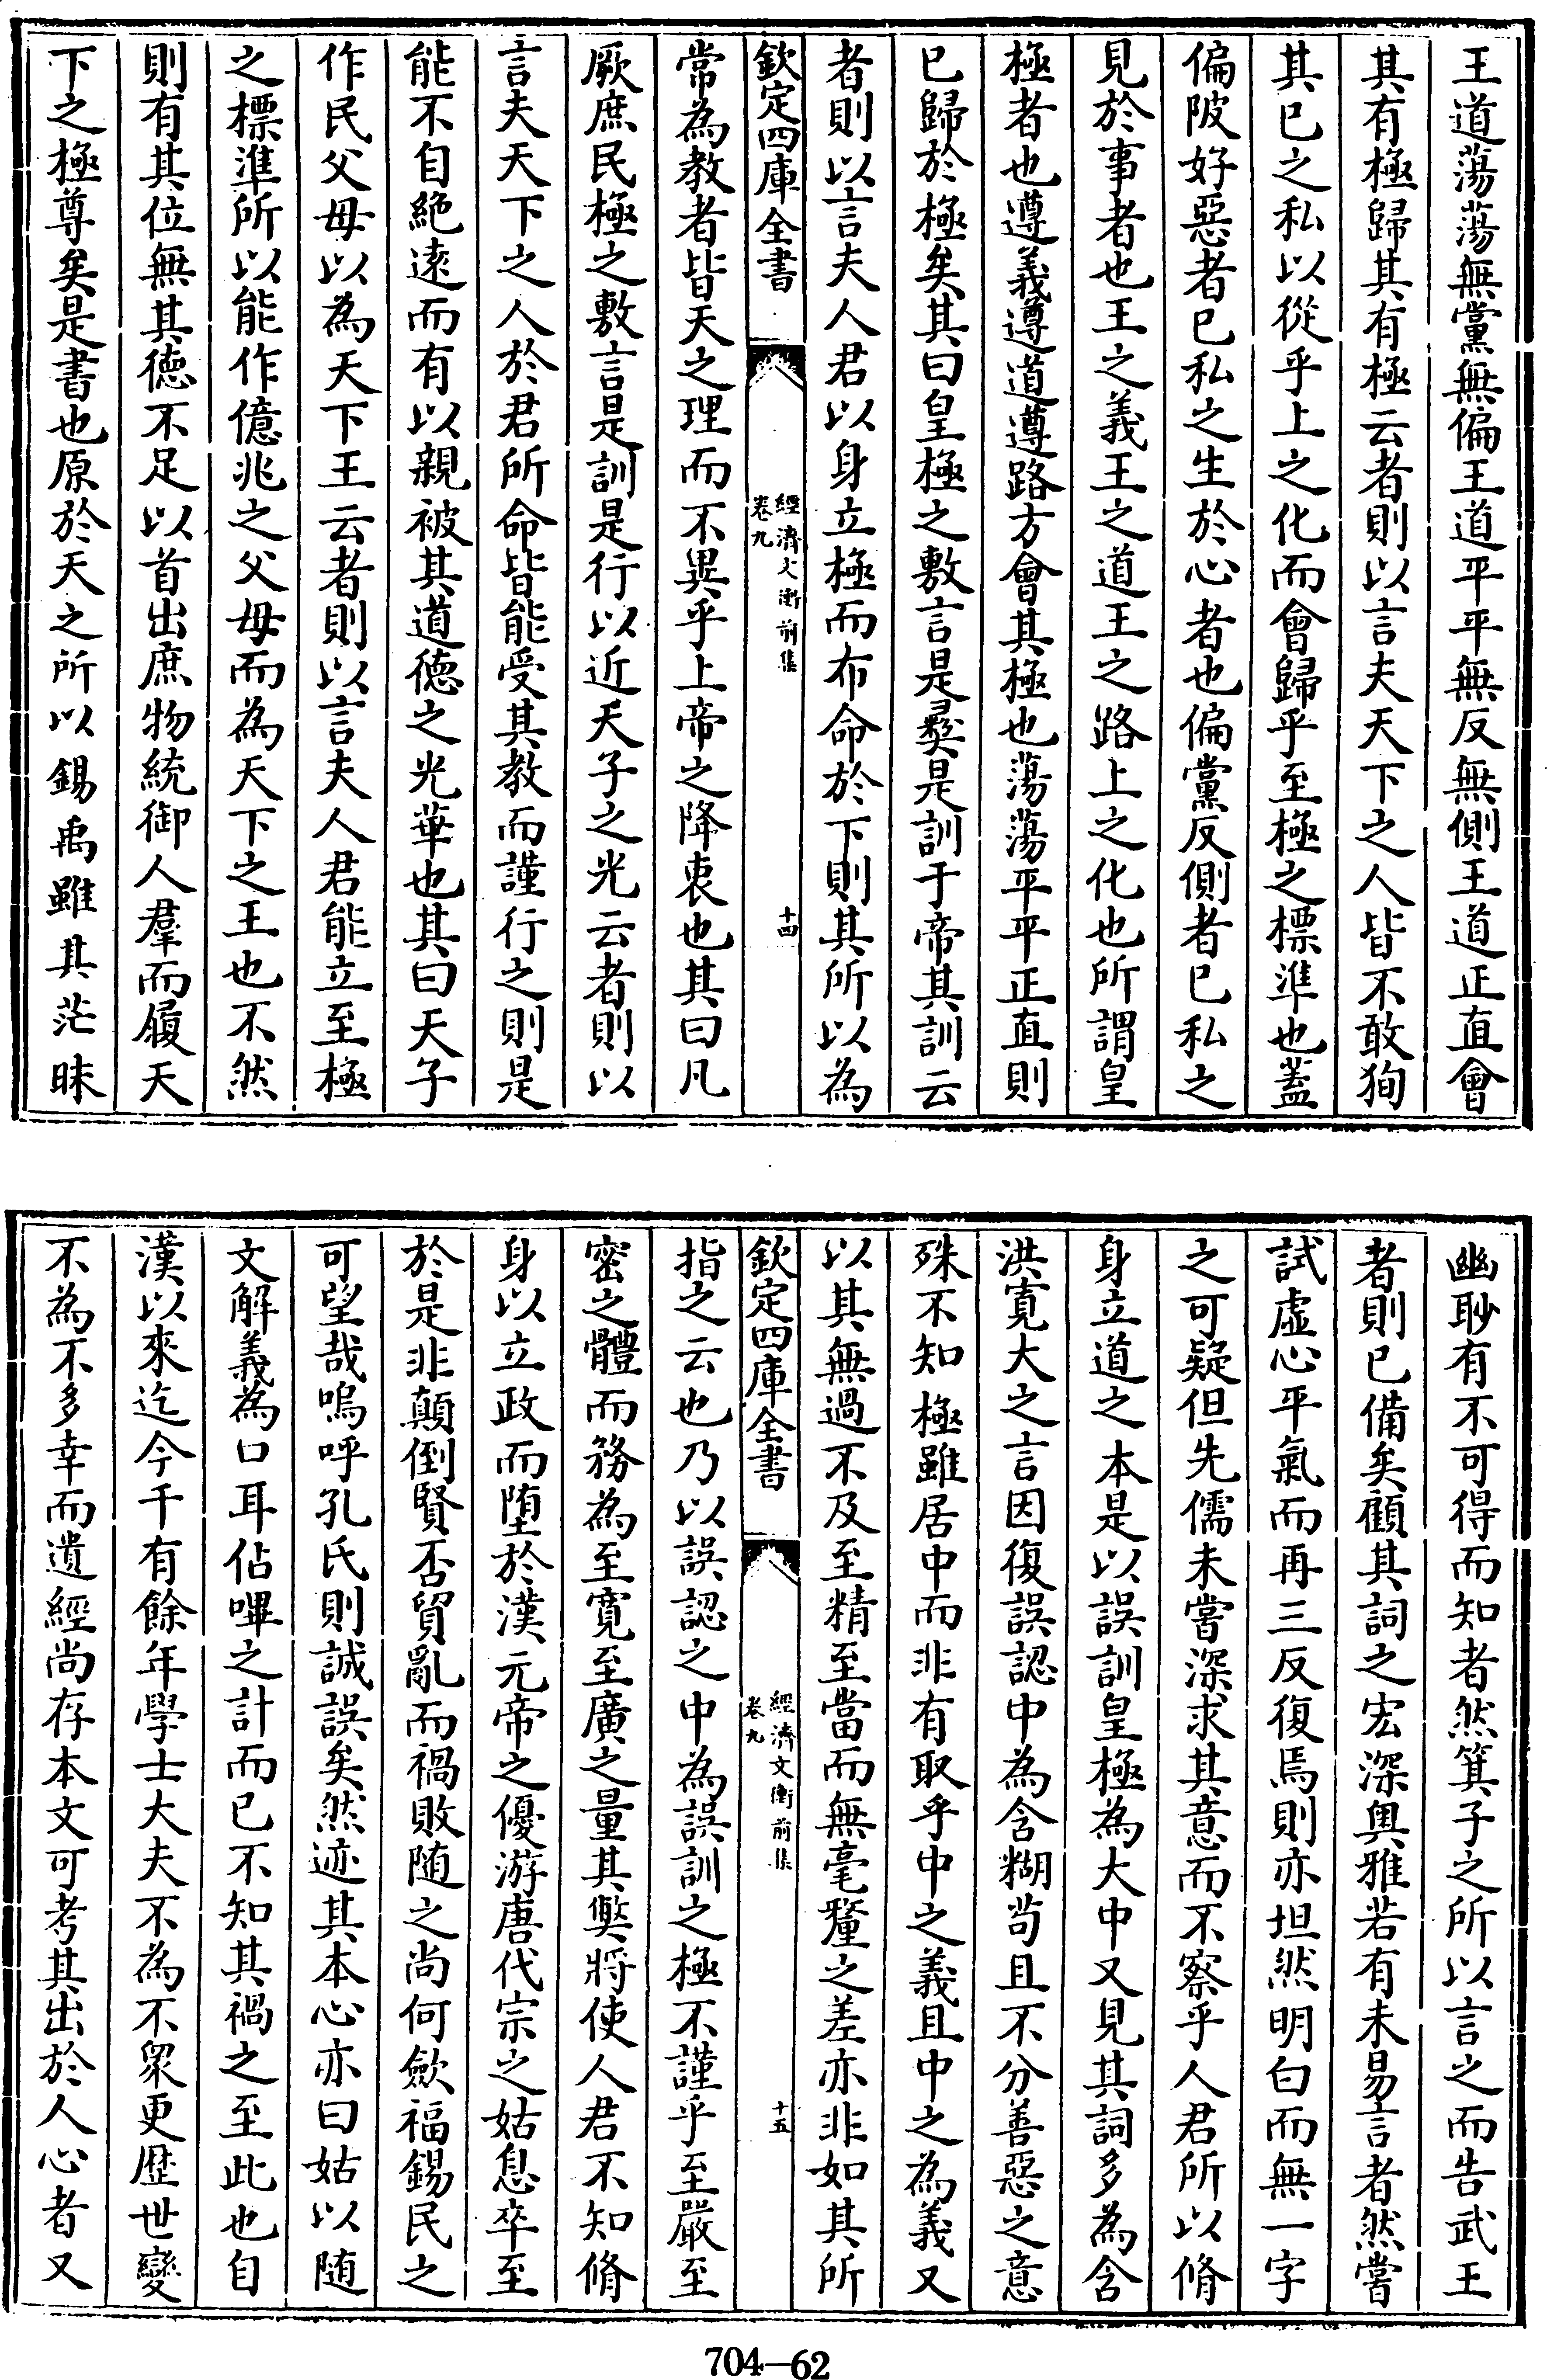 王道蕩蕩無黨無偏王道平平無反無側王道正直會
其有極歸其有極云者則以言夫天下之人皆不敢狥
其已之私以從乎上之化而會歸乎至極之標準也蓋
偏陂好惡者已私之生於心者也偏黨反側者已私之
見於事者也王之義王之道王之路上之化也所謂皇
極者也遵義遵道遵路方會其極也蕩蕩平平正直則
已歸於極矣其曰皇極之敷言是彛是訓于帝其訓云
者則以言夫人君以身立極而布命於下則其所以為
欽定四庫全書
經濟文衡前集
卷九
十四
常為教者皆天之理而不異乎上帝之降衷也其曰凡
厥庶民極之敷言是訓是行以近天子之光云者則以
言夫天下之人於君所命皆能受其教而謹行之則是
能不自絶遠而有以親被其道徳之光華也其曰天子
作民父母以為天下王云者則以言夫人君能立至極
之標準所以能作億兆之父母而為天下之王也不然
則有其位無其徳不足以首出庶物統御人羣而履天
下之極尊矣是書也原於天之所以錫禹雖其茫昧
幽眇有不可得而知者然箕子之所以言之而告武王
者則已備矣顧其詞之宏深奥雅若有未易言者然嘗
試虚心平氣而再三反復焉則亦坦然明白而無一字
之可疑但先儒未嘗深求其意而不察乎人君所以脩
身立道之本是以誤訓皇極為大中又見其詞多為含
洪寛大之言因復誤認中為含糊苟且不分善惡之意
殊不知極雖居中而非有取乎中之義且中之為義又
以其無過不及至精至當而無毫釐之差亦非如其所
欽定四庫全書
經濟文衡前集
卷九
十五
指之云也乃以誤認之中為誤訓之極不謹乎至嚴至
密之體而務為至寛至廣之量其獘將使人君不知脩
身以立政而墮於漢元帝之優游唐代宗之姑息卒至
於是非顛倒賢否貿亂而禍敗随之尚何歛福錫民之
可望哉嗚呼孔氏則誠誤矣然迹其本心亦曰姑以随
文解義為口耳佔嗶之計而已不知其禍之至此也自
漢以來迄今千有餘年學士大夫不為不衆更歴世變
不為不多幸而遺經尚存本文可考其出於人心者又